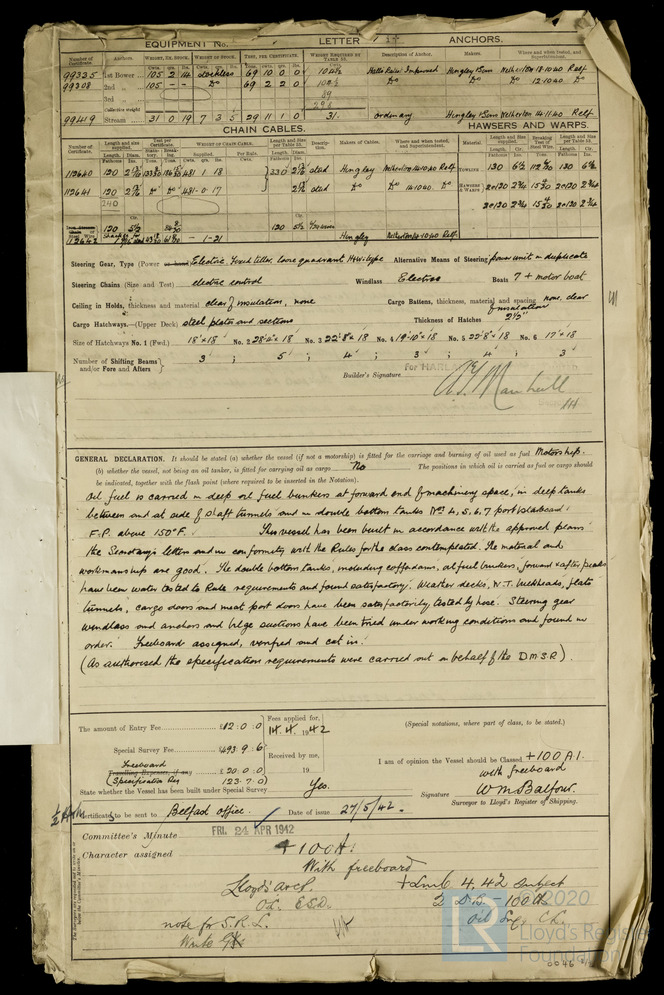 EQUIPMENT No. LETTER ANCHORS.
Number of Certificate. Anchors. WEIGHT, EX. STOCK. WEIGHT OF STOCK. TEST, PER CERTIFICATE. WEIGHT REQUIRED BY TABLE 53. Description of Anchor. Makers. Where and when tested, and Superintendent.
99335 1st Bower 105 2 14 stockless 69 10 0 0 104½ Halls Patent Improved Hingley & Son Netherton 18.10.40 Relf
99308 2nd " 105 — — Do 69 2 2 0 Do Do 12.10.40 Do
3rd "
Collective weight
99419 Stream 31 0 19 7 3 5 29 11 1 0 31. ordinary Hingley & Son Netherton 14.11.40 Relf
CHAIN CABLES. HAWSERS AND WARPS.
Number of Certificate. Length and size supplied. Test per Certificate. WEIGHT OF CHAIN CABLE. Length and size per Table 53. Description. Makers of Cables. Where and when tested, and Superintendent. Material. Length and size supplied. Breaking Test of Steel Wire. Length and Size per Table 53.
112640 120 481 1 18 330 sted Hingley Netherton 14.10.40 Relf TOWLINE 130 6½ 130
112641 120 Do Do 481-0-17 sted Do Do 14.10.40. Do HAWSERS & WARPS 2@120 2¾ 2@120 2¾
240 2@120 2¾ 2@120 2¾
120 5½ 120 5½
112642 — 1-21 Hingley Netherton 14.10.40 Relf.
Steering Gear, Type (Power or hand) Electric, Fixed tiller, loose quadrant H&W type Alternative Means of Steering power unit in duplicate
Steering Chains (Size and Test) electric control Windlass Electric Boats 7 + motor boat
Ceiling in Holds, thickness and material clear of insulation, none Cargo Battens, thickness, material and spacing none, clear of insulation
Cargo Hatchways.—(Upper Deck) steel plates and sections Thickness of Hatches 2½"
Size of Hatchways No. 1 (Fwd.) 18'×18' No. 2 No. 3 22'-8"×18 No. 4 19'-10"×18 No. 5 22'-8"×18 No. 6 17'×18
Number of Shifting Beams and/or Fore and Afters 3 ; 5 ; 4 ; 3 ; 4 ; 3
Builder's Signature
GENERAL DECLARATION. It should be stated (a) whether the vessel (if not a motorship) is fitted for the carriage and burning of oil used as fuel Motorship.
(b) whether the vessel, not being an oil tanker, is fitted for carrying oil as cargo No The positions in which oil is carried as fuel or cargo should
be indicated, together with the flash point (where required to be inserted in the Notation).
Oil fuel is carried in deep oil fuel bunkers at forward end of machinery space, in deep tanks
between and at side of shaft tunnels and in double bottom tanks Nos 4, 5, 6, 7 port & starboard.
F.P. above 150°F. This vessel has been built in accordance with the approved plans
the Secretary's letters and in conformity with the Rules for the class contemplated. The material and
workmanship are good. The double bottom tanks, including cofferdams, oil fuel bunkers, forward & after peaks
have been water tested to Rule requirements and found satisfactory. Weather decks, W.T. bulkheads, flats
tunnels, cargo doors and meat port doors have been satisfactorily tested by hose. Steering gear
windlass and anchors and bilge suctions have been tried under working conditions and found in
order. Freeboard assigned, verified and cut in.
(As authorised the specification requirements were carried out on behalf of the D.M.S.R.).
The amount of Entry Fee £12:0:0 Fees applied for, 14.4.1942 (Special notations, where part of class, to be stated.)
Special Survey Fee £493:9:6 Received by me,
Freeboard Travelling Expenses, if any £20:0:0 19 I am of opinion the Vessel should be Classed +100A1.
(Specification Req 123.7.0) with freeboard
State whether the Vessel has been built under Special Survey Yes. Signature W. M. Balfour.
Surveyor to Lloyd's Register of Shipping.
Certificate to be sent to Belfast office. Date of issue 27/5/42.
Committee's Minute FRI. 24 APR 1942
Character assigned +100A1
With freeboard
Lloyd's A&CP. +LMC 4,42 subject
2 D.B.—100 lb
note for S.R.L. Oil Eng. CL.
Write
© 2020
LR
Lloyd's Register
Foundation
0046